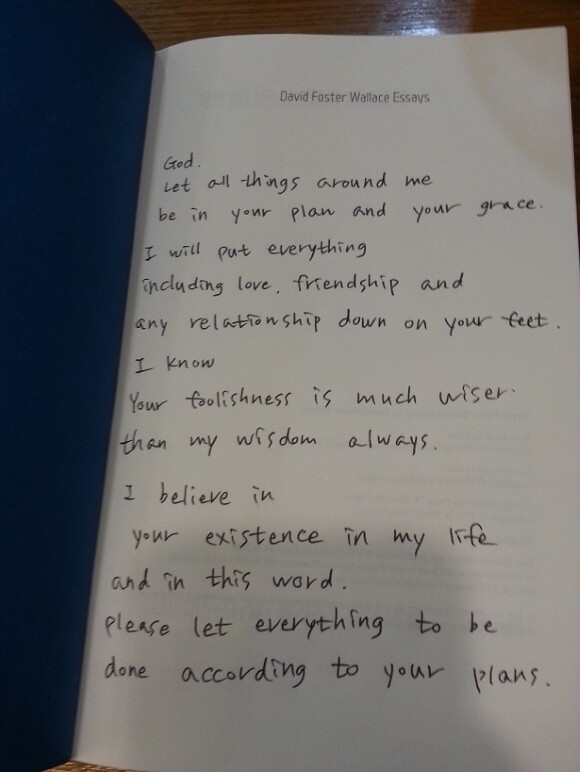 David Foster Wallace Essays
God.
Let all things around me
be in your plan and your grace.
I will put everything
including love, friendship and
any relationship down on your feet.
I know
Your foolishness is much wiser
than my wisdom always.
I believe in
your existence in my life
and in this word.
please let everything to be
done according to your plans.